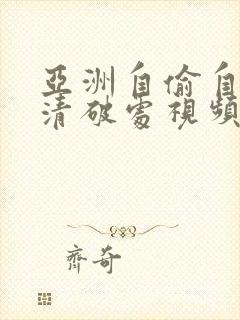 亞洲自偷自
清破處視頻
齊奇